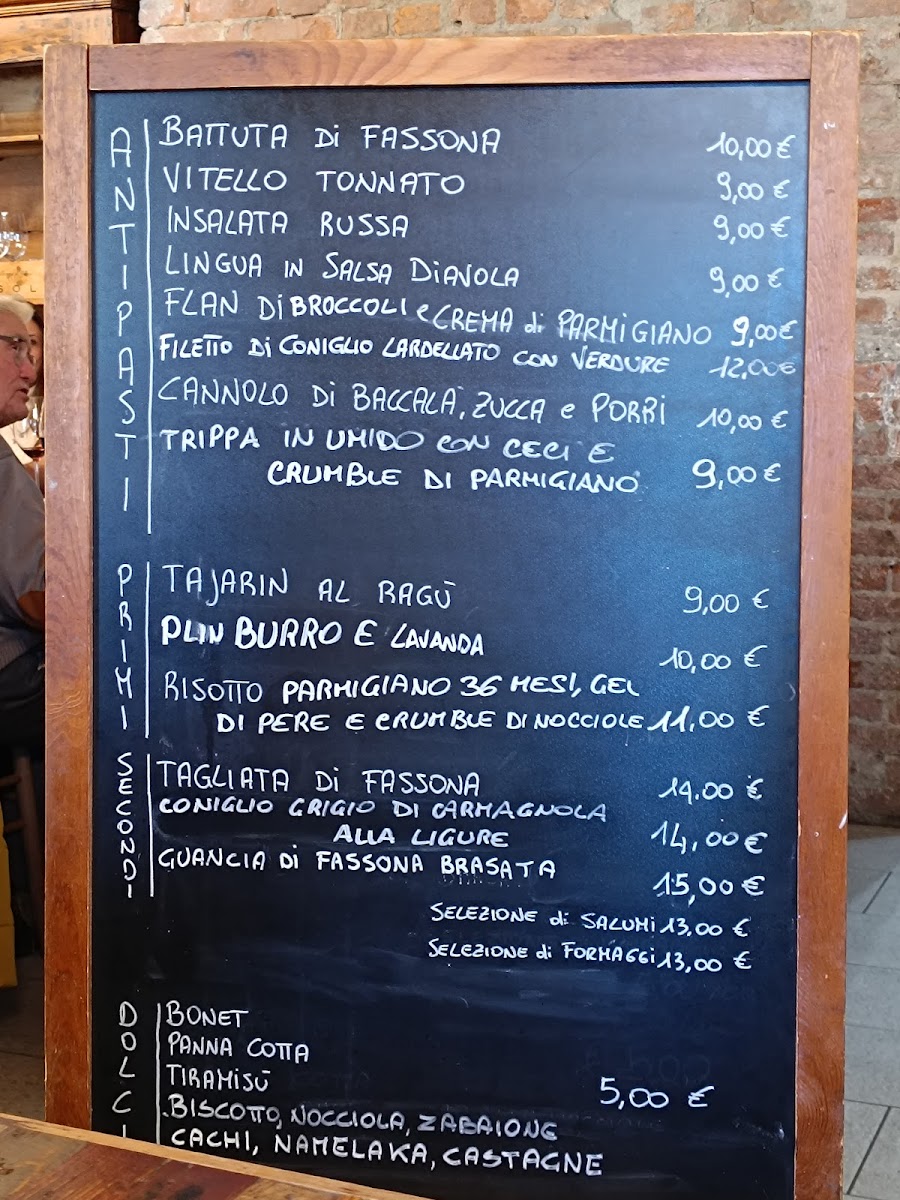 ANTIPASTI
BATTUTA Di FASSONA 10,00 €
VITELLO TONNATO 9,00 €
INSALATA RUSSA 9,00 €
LINGUA IN SALSA DIAVOLA 9,00 €
FLAN Di BROCCOLI e CREMA di PARMIGIANO 9,00€
FILETTO Di CONIGLIO LARDELLATO CON VERDURE 12,00€
CANNOLO Di BACCALÀ, ZUCCA e PORRI 10,00 €
TRIPPA IN UMIDO CON CECI E
CRUMBLE DI PARMIGIANO 9,00 €
PRIMI
TAJARIN AL RAGÙ 9,00 €
PLIN BURRO E LAVANDA 10,00 €
RISOTTO PARMIGIANO 36 MESI, GEL
DI PERE E CRUMBLE DI NOCCIOLE 11,00 €
SECONDI
TAGLIATA Di FASSONA 14,00 €
CONIGLIO GRIGIO DI CARMAGNOLA
ALLA LIGURE 14,00 €
GUANCIA Di FASSONA BRASATA 15,00 €
SELEZIONE di SALUMI 13,00 €
SELEZIONE di FORMAGGI 13,00 €
DOLCI
BONET
PANNA COTTA
TIRAMISÙ 5,00 €
BISCOTTO, NOCCIOLA, ZABAIONE
CACHI, NAMELAKA, CASTAGNE